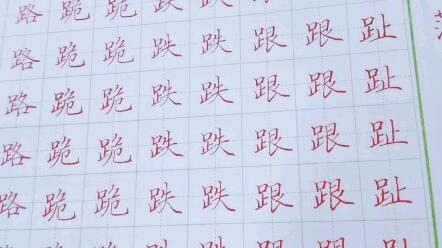 路跪跪跌跌跟跟趾
路跪跪跌跌跟跟趾
路跪跪跌跌跟跟趾
路跪跪跌跌跟跟趾
路跪跪跌跌跟跟趾